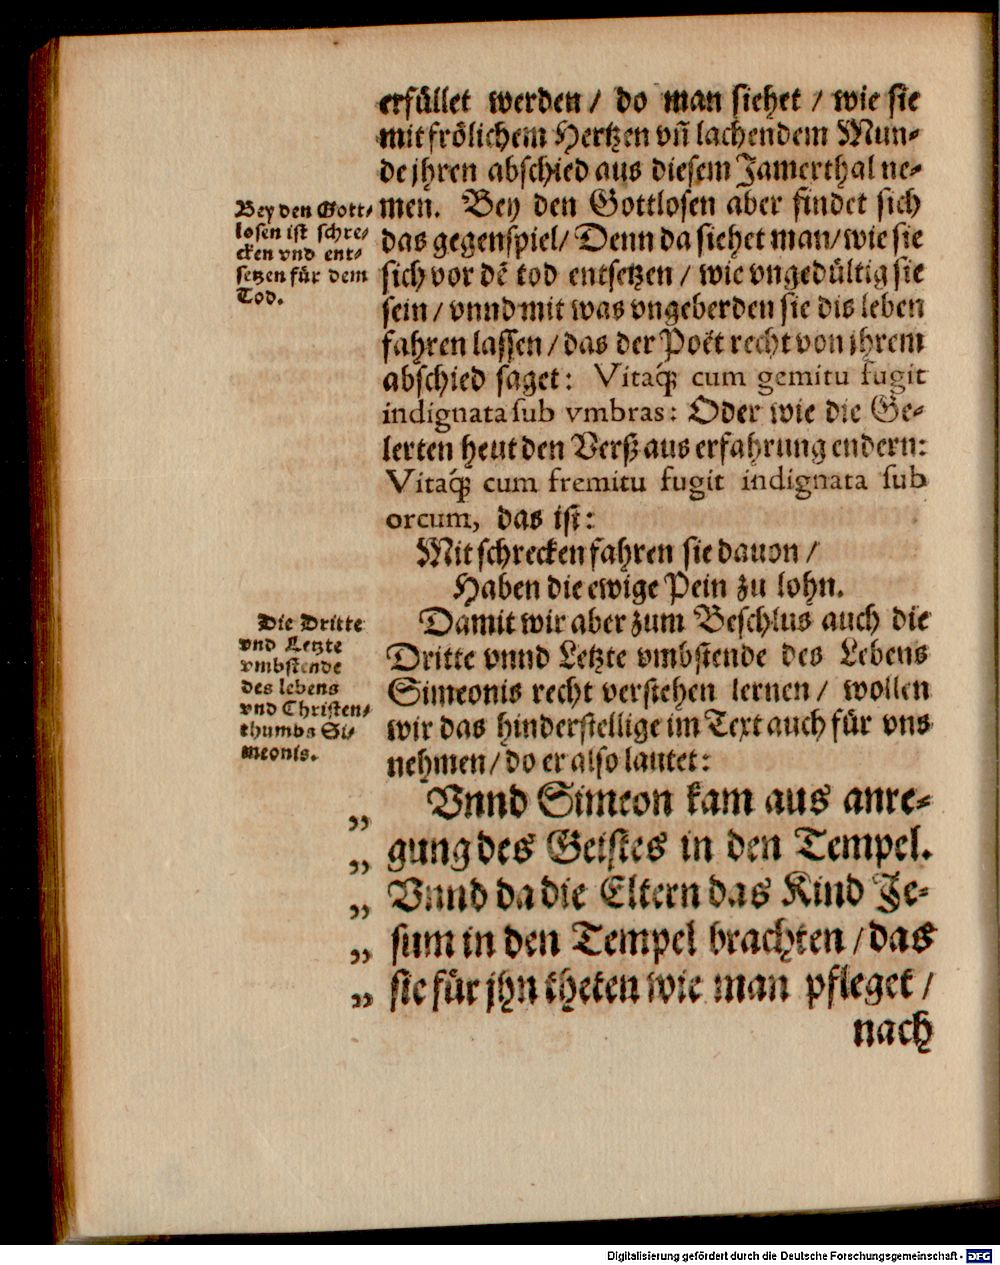 erfüllet werden / do man siehet / wie sie
mit frölichem Hertzen vñ lachendem Mun-
de jhren abschied aus diesem Jamerthal ne-
men. Bey den Gottlosen aber findet sich
das gegenspiel / Denn da siehet man / wie sie
sich vor dẽ tod entsetzen / wie vngedültig sie
sein / vnnd mit was vngeberden sie dis leben
fahren lassen / das der Poët recht von jhrem
abschied saget: Vitaq́; cum gemitu fugit
indignata sub vmbras: Oder wie die Ge-
lerten heut den Verß aus erfahrung endern:
Vitaq́; cum fremitu fugit indignata sub
orcum, das ist:
Mit schrecken fahren sie dauon /
Haben die ewige Pein zu lohn.
Damit wir aber zum Beschlus auch die
Dritte vnnd Letzte vmbstende des Lebens
Simeonis recht verstehen lernen / wollen
wir das hinderstellige im Text auch für vns
nehmen / do er also lautet:
Vnnd Simeon kam aus anre-
„ gung des Geistes in den Tempel.
„ Vnnd da die Eltern das Kind Je-
„ sum in den Tempel brachten / das
„ sie für jhn theten wie man pfleget /
„
nach
Bey den Gott-
losen ist schre-
cken vnd ent-
setzen für dem
Tod.
Die Dritte
vnd Letzte
vmbstende
des lebens
vnd Christen-
thumbs Si-
meonis.
Digitalisierung gefördert durch die Deutsche Forschungsgemeinschaft - DFG